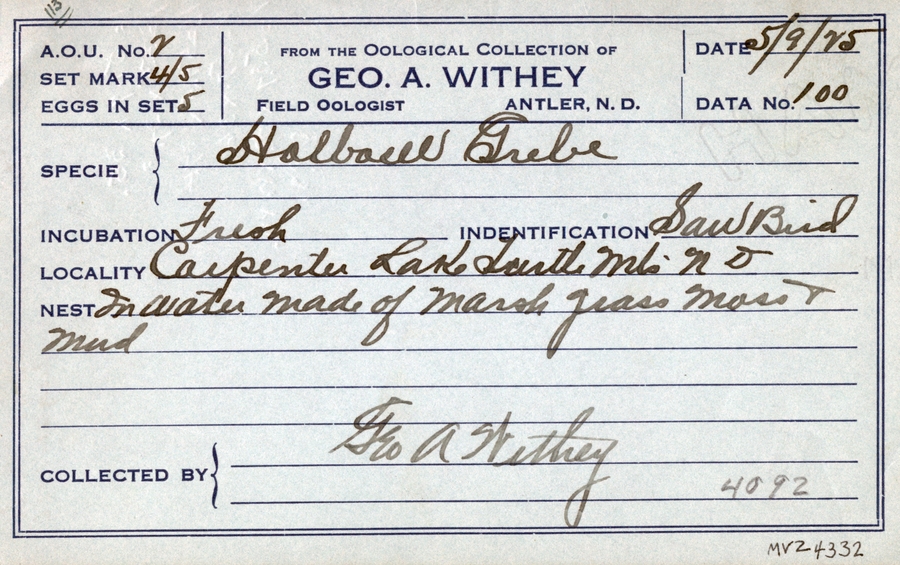 13
A.O.U. No. 2
SET MARK 4/5
EGGS IN SET 5
FROM THE OOLOGICAL COLLECTION OF
GEO. A. WITHEY
FIELD OOLOGIST ANTLER, N. D.
DATE 5/9/25
DATA No. 100
SPECIE Holboell Grebe
INCUBATION Fresh INDENTIFICATION Saw Bird
LOCALITY Carpenter Lake Turtle Mts N D
NEST In water made of Marsh grass Moss &
Mud
COLLECTED BY Geo A Withey
4092
MVZ 4332